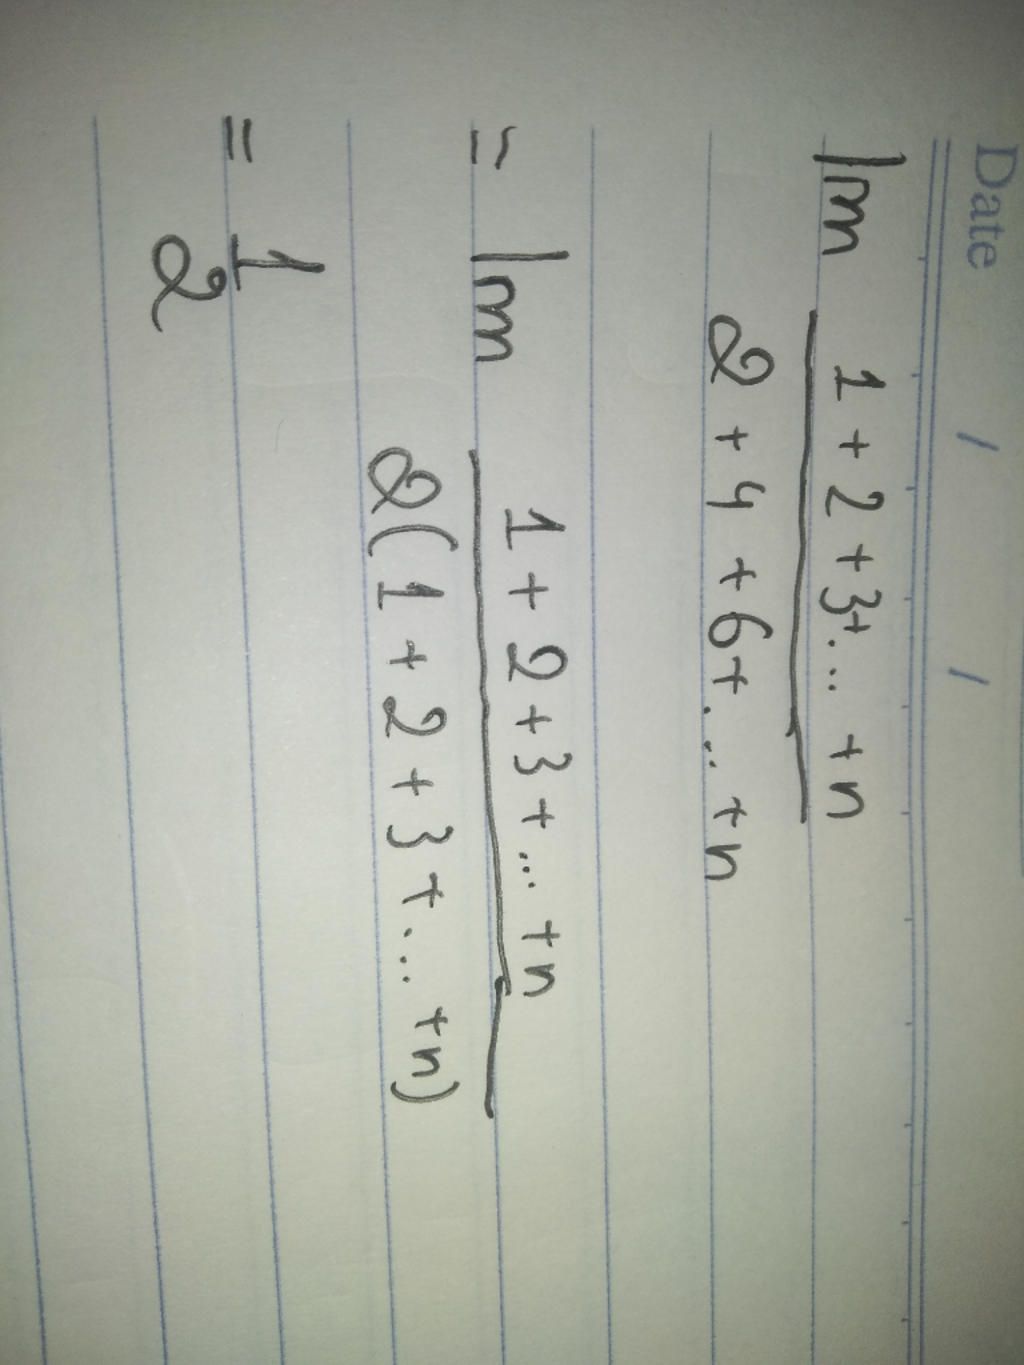 Date / /
lm 1 + 2 + 3+... + n
2 + 4 + 6+... + n
= lm 1 + 2 + 3 + ... + n
2 ( 1 + 2 + 3 + ... + n)
= 1
2